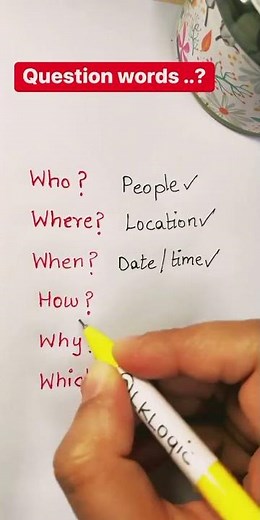 Question words ..?
Who? People✓
Where? Location✓
When? Date/time✓
How?
Why?
Which
@LKLogic